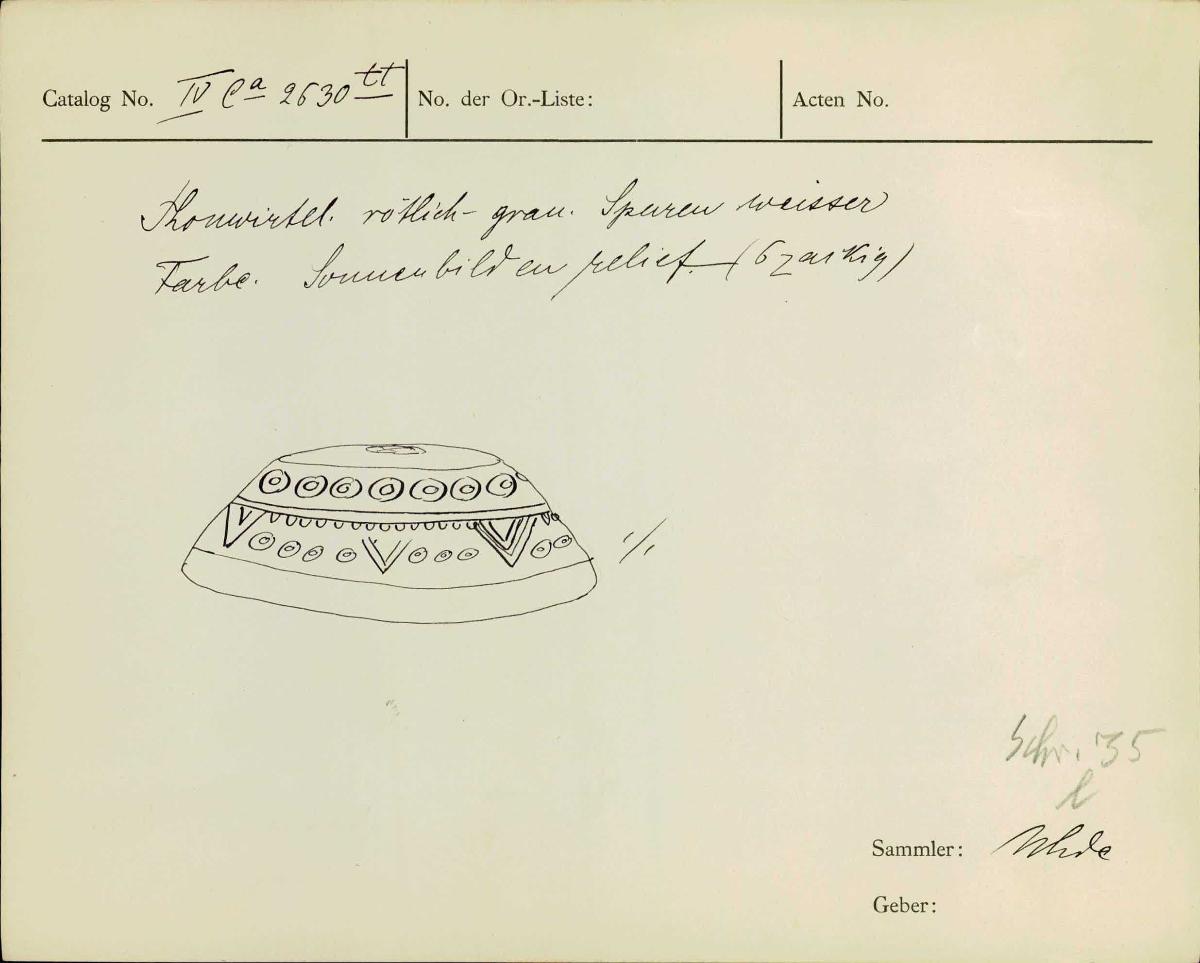 Catalog No. IV Ca 2630 tt
No. der Or.-Liste:
Acten No.
Thonwirtel. rötlich-grau. Spuren weisser
Farbe. Sonnenbild en relief. (6 zackig)
1/1
Schr. 35
l
Sammler: Uhde
Geber: